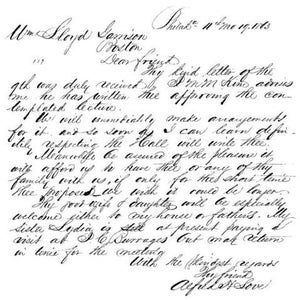 Philada 11th Mo 19, 1863
Wm Lloyd Garrison
Boston
Dear friend
Thy kind letter of the
9th was duly received by J M McKim advises
me he has written thee approving the con-
templated lecture.
We will immediately make arrangements
for it, and so soon as I can learn defin-
itely respecting the Hall will write thee.
Meanwhile be assured of the pleasure it
will afford us to have thee or any of thy
family with us, if only for the short time
thee proposes, we wish it could be longer.
Thy good wife & daughter will be especially
welcome either to my house or fathers. My
Sister Lydia is at present paying a
visit at Burrages but may return
in time for the meeting
With the kindest regards
Thy friend
Alfred H Love